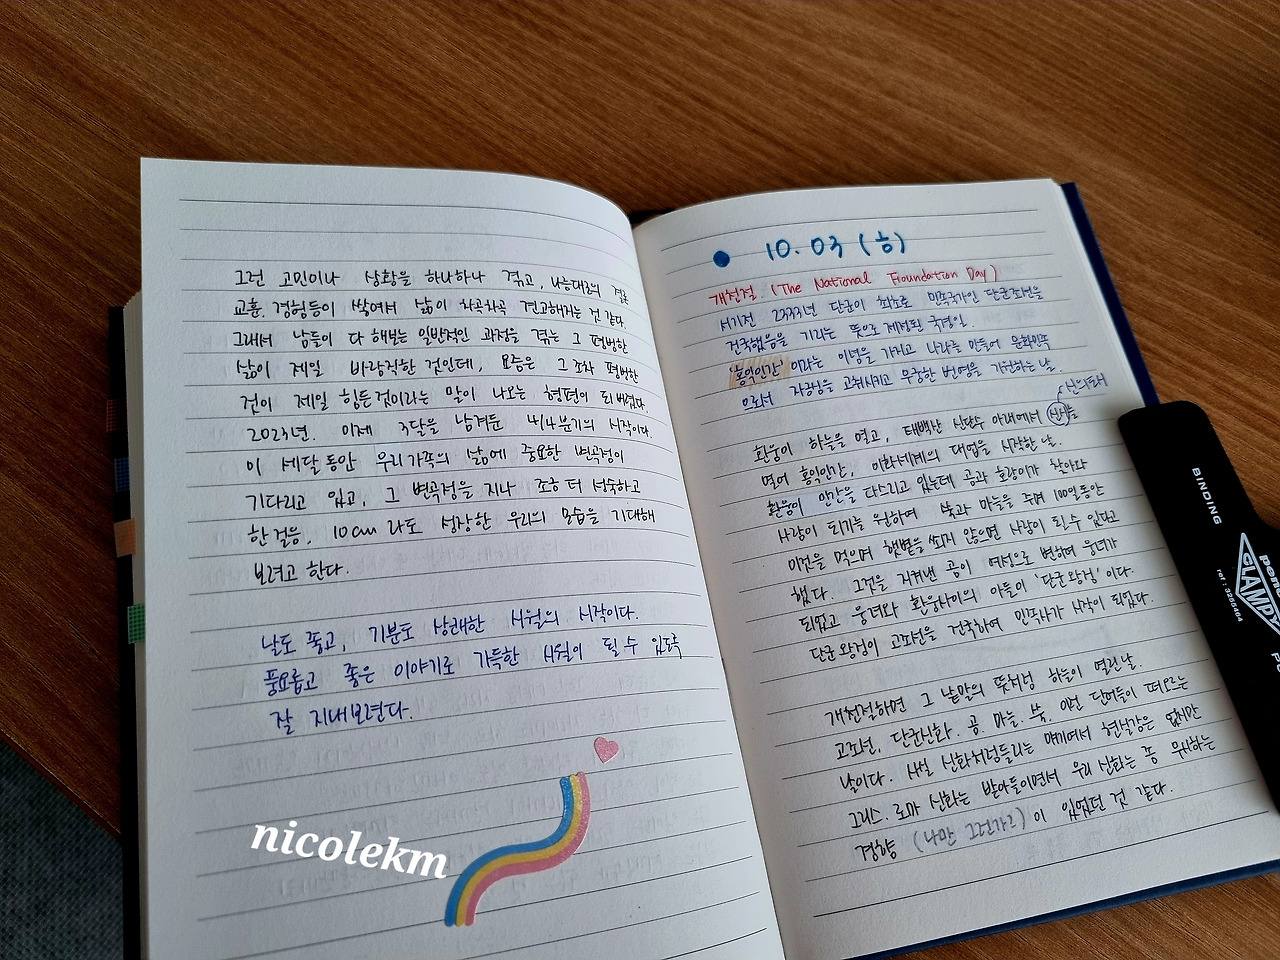 그런 고민이나 상황을 하나하나 겪고, 나름대로의 결론
교훈. 경험등이 쌓여서 삶이 차곡차곡 견고해지는 것 같다.
그래서 남들이 다 해보는 일반적인 과정을 겪는 그 평범한
삶이 제일 바람직한 것인데, 요즘은 그조차 평범한
것이 제일 힘든것이라는 말이 나오는 형편이 되버렸다.
2023년. 이제 3달을 남겨둔 4/4분기의 시작이다.
이 세달동안 우리가족의 삶에 중요한 변곡점이
기다리고 있고, 그 변곡점을 지나 조금 더 성숙하고
한걸음, 10cm 라도 성장한 우리의 모습을 기대해
보려고 한다.
날도 좋고, 기분도 상쾌한 시월의 시작이다.
풍요롭고 좋은 이야기로 가득한 시월이 될 수 있도록
잘 지내보련다.
nicolekm
10. 03 (화)
개천절. (The National Foundation Day)
서기전 2333년 단군이 최초로 민족국가인 단군조선을
건국했음을 기리는 뜻으로 제정된 국경일.
'홍익인간' 이라는 이념을 가지고 나라를 만들어 문화민족
으로서 자긍심을 고취시키고 무궁한 번영을 기원하는 날.
신의도시
환웅이 하늘을 열고, 태백산 신단수 아래에서 신시를
열어 홍익인간, 이화세계의 대업을 시작한 날.
환웅이 인간을 다스리고 있는데 곰과 호랑이가 찾아와
사람이 되기를 원하여 쑥과 마늘을 주며 100일동안
이것을 먹으며 햇볕을 쬐지 않으면 사람이 될수 있다고
했다. 그것을 지켜낸 곰이 여성으로 변하여 웅녀가
되었고 웅녀와 환웅사이의 아들이 '단군왕검' 이다.
단군왕검이 고조선을 건국하여 민족사가 시작이 되었다.
개천절하면 그 낱말의 뜻처럼 하늘이 열린날.
고조선, 단군신화. 곰. 마늘. 쑥. 이런 단어들이 떠오르는
날이다. 사실 신화처럼들리는 얘기여서 현실감은 없지만
그리스. 로마 신화는 받아들이면서 우리 신화는 좀 무시하는
경향 (나만 그런가?) 이 있었던 것 같다.
BINDING
CLAMPY
ref: 329464